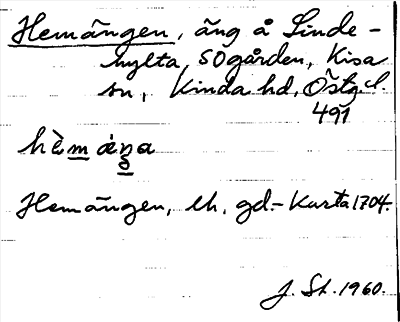 Hemängen, äng å Linde-
hylta, SOgården, Kisa
sn, Kinda hd, Östg. l.
491
hèmáŋa
Hemängen, lh. gd.- Karta 1704.
J. Sh. 1960.